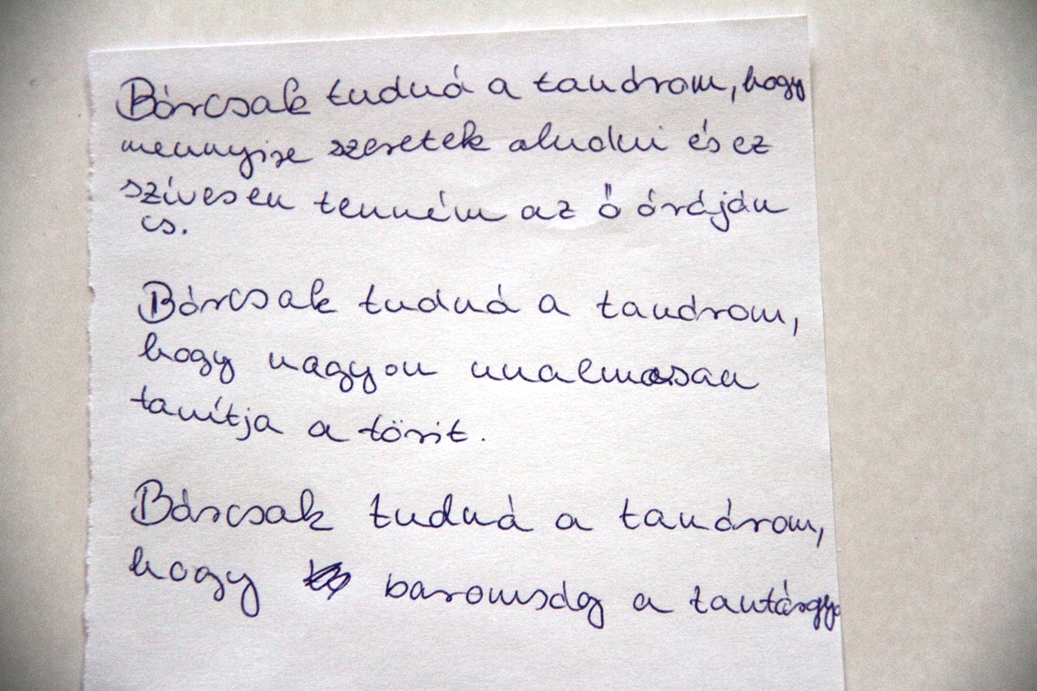 Bárcsak tudná a tanárom, hogy
mennyire szeretek aludni és ez
szívesen tenném az ő óráján
is.
Bárcsak tudná a tanárom,
hogy nagyon unalmasan
tanítja a törit.
Bárcsak tudná a tanárom,
hogy baromság a tantárgya